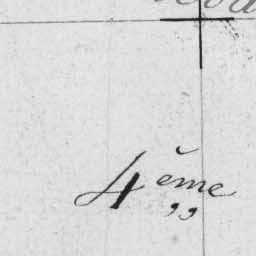 4ème